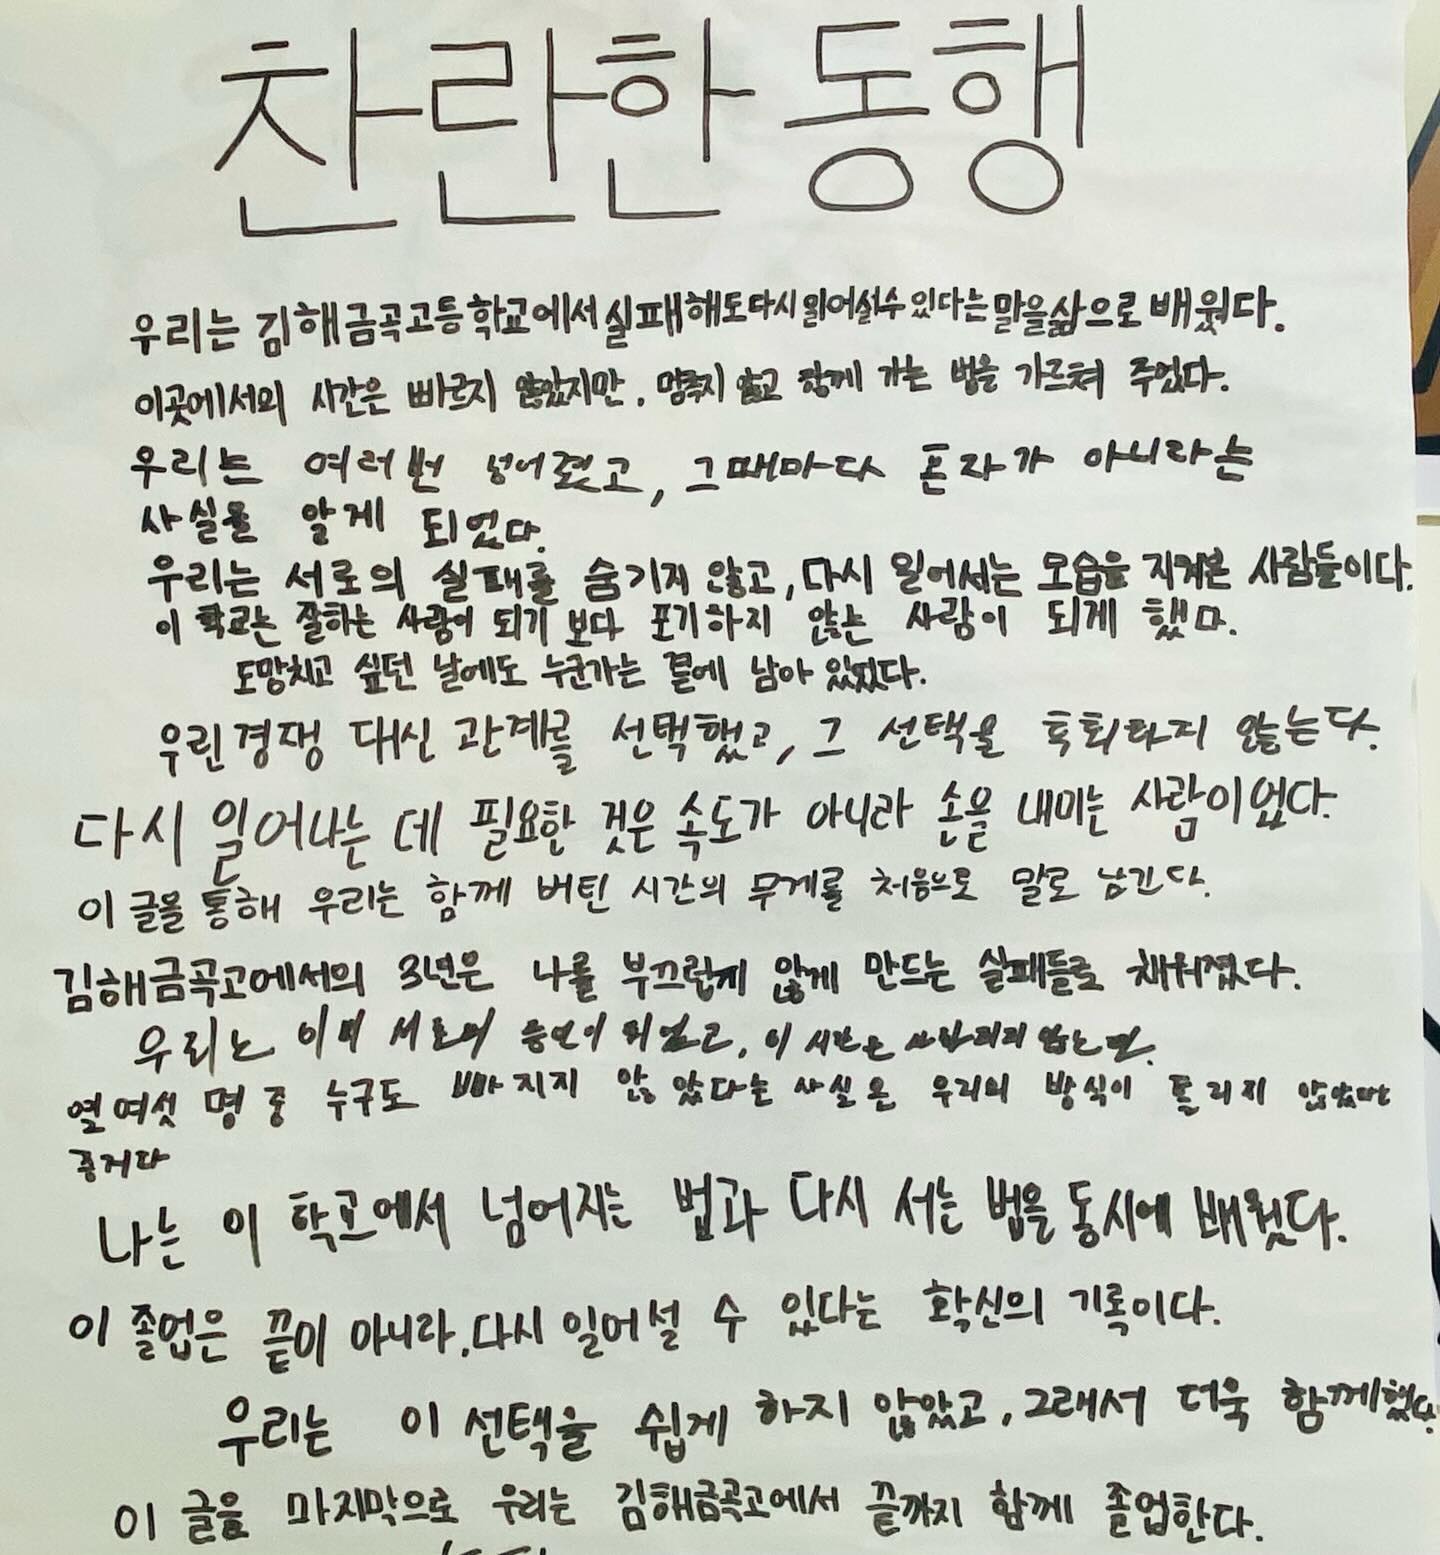 찬란한 동행
우리는 김해금곡고등학교에서 실패해도 다시 일어설 수 있다는 말을 삶으로 배웠다.
이곳에서의 시간은 빠르지 않았지만, 멈추지 않고 함께 가는 법을 가르쳐 주었다.
우리는 여러번 넘어졌고, 그때마다 혼자가 아니라는
사실을 알게 되었다.
우리는 서로의 실패를 숨기지 않고, 다시 일어서는 모습을 지켜본 사람들이다.
이 학교는 잘하는 사람이 되기 보다 포기하지 않는 사람이 되게 했다.
도망치고 싶던 날에도 누군가는 곁에 남아 있었다.
우린 경쟁 대신 관계를 선택했고, 그 선택을 후회하지 않는다.
다시 일어나는 데 필요한 것은 속도가 아니라 손을 내미는 사람이었다.
이 글을 통해 우리는 함께 버틴 시간의 무게를 처음으로 말로 남긴다.
김해금곡고에서의 3년은 나를 부끄럽게 않게 만드는 실패들로 채워졌다.
우리는 이미 서로의 증인이 되었고, 이 시간은 사라지지 않는다.
열여섯 명 중 누구도 빠지지 않았다는 사실은 우리의 방식이 틀리지 않았다는
증거다
나는 이 학교에서 넘어지는 법과 다시 서는 법을 동시에 배웠다.
이 졸업은 끝이 아니라, 다시 일어설 수 있다는 확신의 기록이다.
우리는 이 선택을 쉽게 하지 않았고, 그래서 더욱 함께했다.
이 글을 마지막으로 우리는 김해금곡고에서 끝까지 함께 졸업한다.